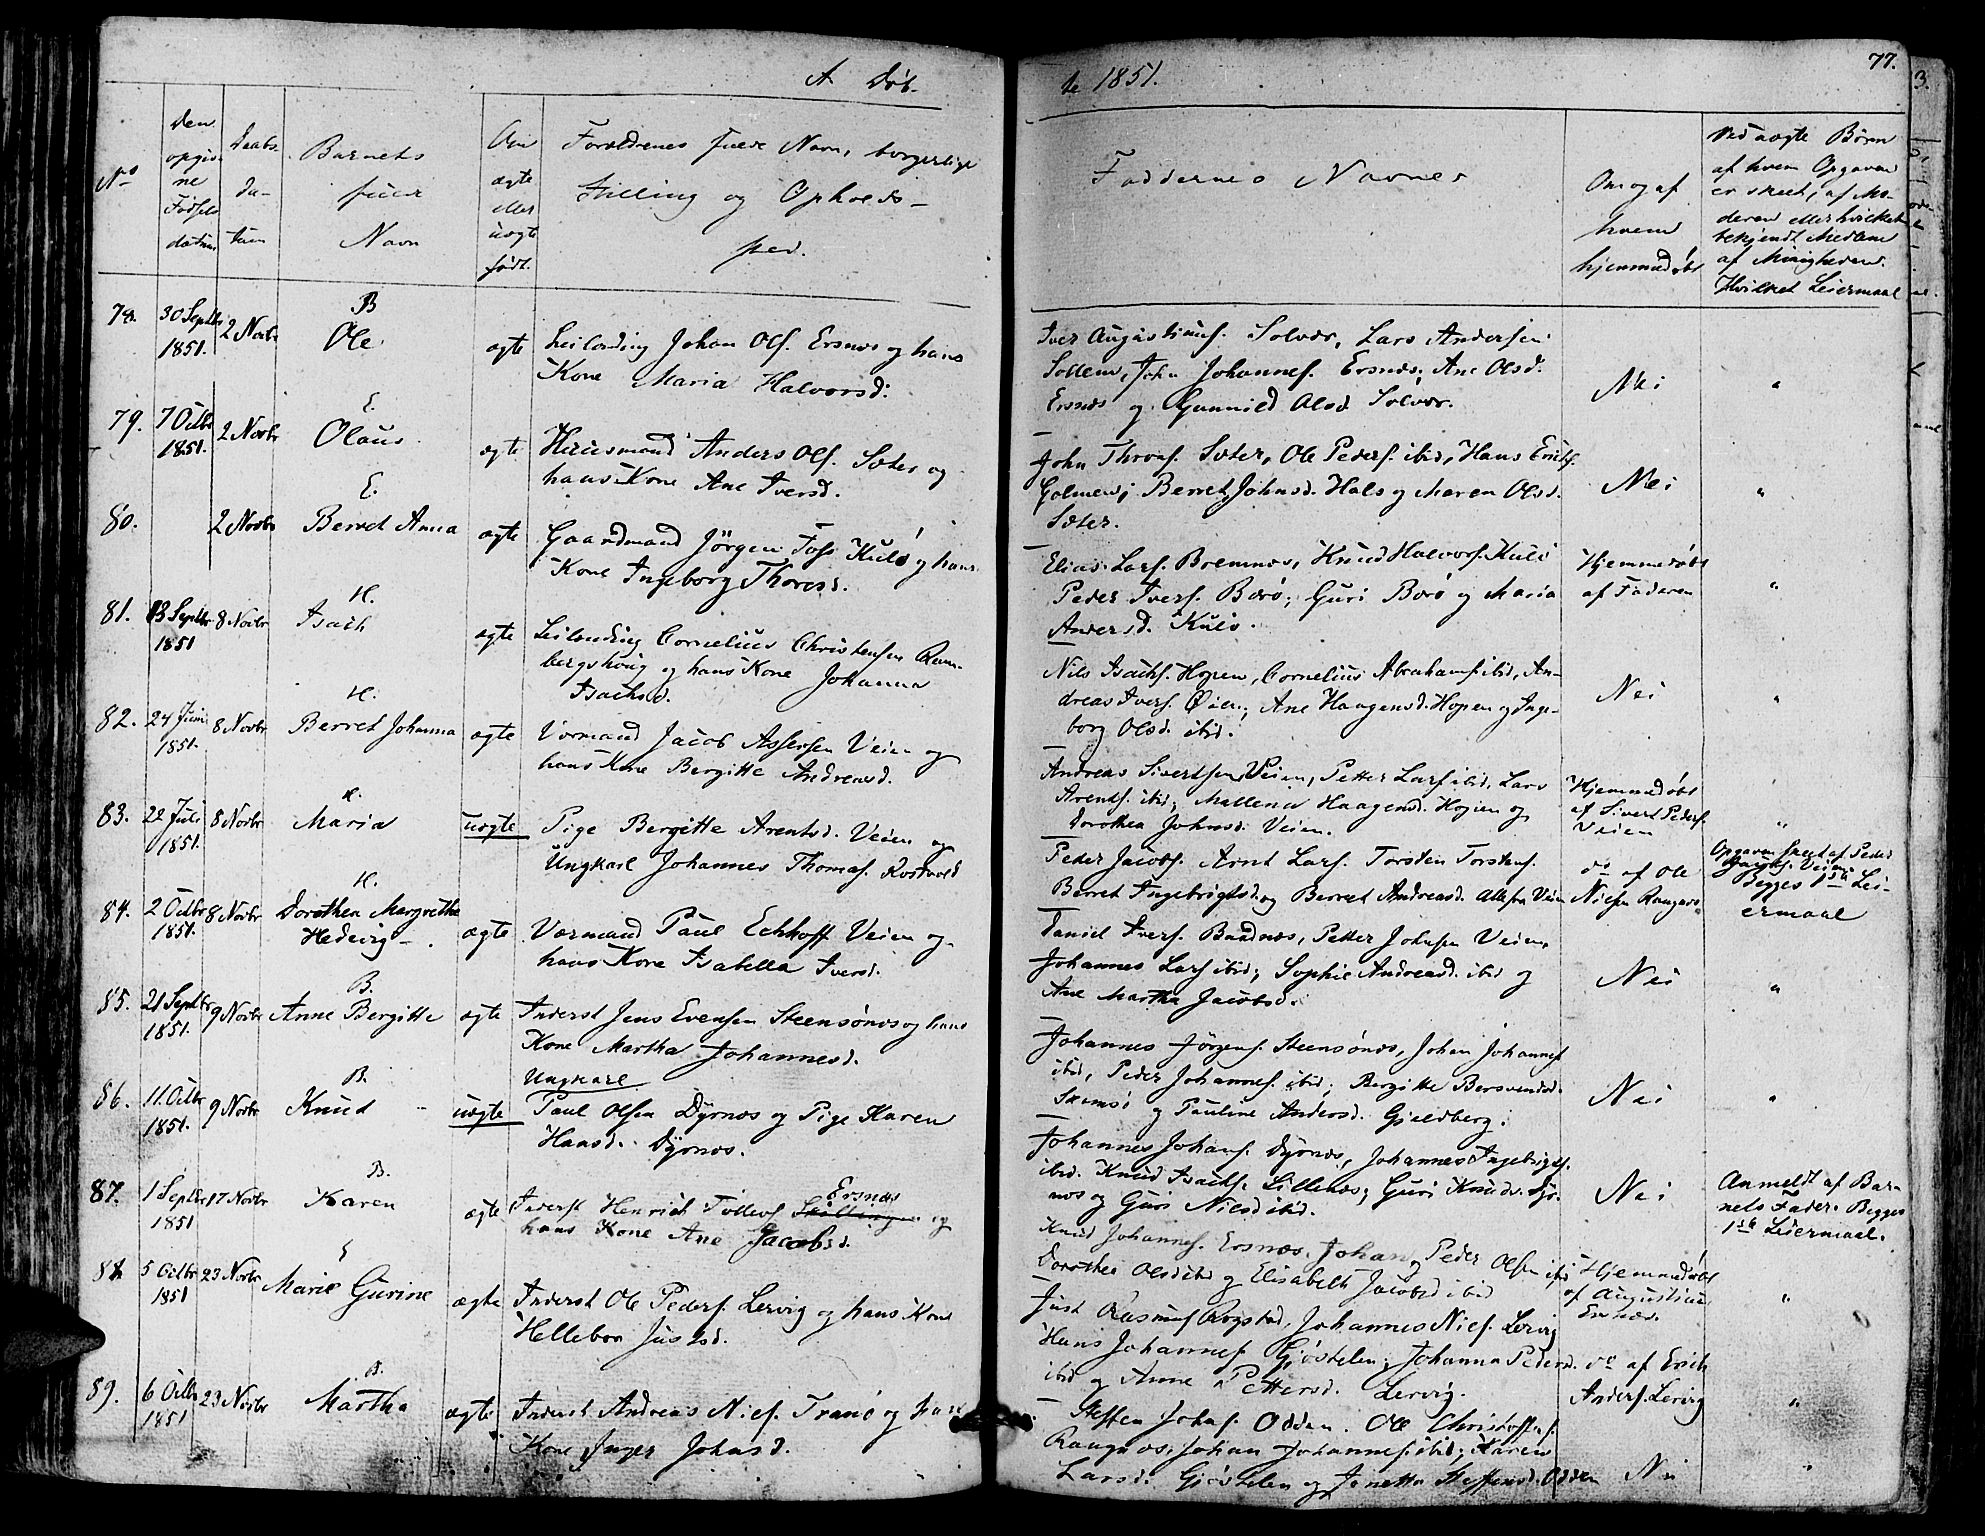 A Døb-
te 1851.
77.
No
Den
opgiv
ne
Fødsels
datum
Daabs
da-
tum
Barnets
fulde
Navn
Om
ægte
eller
uægte
født.
Forældrenes fulde Navn, borgerlige
Stilling og Opholds-
sted.
Faddernes Navne
Om og af
hvem
hjemmedøbt
Ved uægte Børn
af hvem Opgaven
er skeet, af Mo-
deren eller hvilket
bekjendt Medlem
af Menigheden.
Hvilket Leiermaal
78. 30 Septbr 2 Novbr B
1851. Ole ægte Leilending Johan Ols. Ersnæs og hans
Kone Maria Halvorsd.
Iver Augustinus. Solvær, Lars Andersen
Sollem, John Johannes. Ersnæs, Ane Olsd.
Ersnæs og Gunnild Olsd. Solvær.
Nei "
79. 7 Octbr 2 Novbr E.
1851. Olaus ægte Huusmand Anders Ols. Sæter og
hans Kone Ane Iversd.
John Thores. Sæter, Ole Peders. ibid, Hans Erichs.
Golmen; Berret Johnsd. Hals og Maren Olsd.
Sæter.
Nei "
80. 2 Novbr E.
Berret Anna ægte Gaardmand Jörgen Fos. Kulö og hans
Kone Ingeborg Thoresd.
Elias Lars. Bremnæs, Knud Halvors. Kulö
Peder Ivers. Borö; Guri Borö og Maria
Andersd. Kulö.
Hjemmedøbt
af Faderen "
81. 13 Septbr 8 Novbr H.
1851 Isach ægte Leilending Cornelius Christensen Ram-
bergshoug og hans Kone Johanna
Isachsd.
Nils Isachs. Hopen, Cornelius Abrahams. ibid, An-
dreas Ivers. Øien; Ane Haagensd. Hopen og Inge-
borg Olsd. ibid.
Nei "
82. 24 Juni 8 Novbr H.
1851. Berret Johanna ægte Vormand Jacob Assersen Veien og
hans Kone Bergitte Andreasd.
Andreas Sivertsen Veien, Petter Lars. ibid, Lars
Arents. ibid; Mallena Haagensd. Hopen og
Dorothea Johnsd. Veien.
Hjemmedøbt
af Sivert Peders.
Veien "
83. 22 Juli 8 Novbr H.
1851. Maria uægte Pige Bergitte Arentsd. Veien og
Ungkarl Johannes Thomas.
Peder Jacobs. Arnt Lars. Torsten Torstens.
Berret Ingebrigtsd. og Berret Andreasd. alle fra Veien
do af Ole
Nielsen
Opgaven skeet af Peder
Jacobs. Veien
Begges 1ste Lei-
ermaal
84. 2 Octbr 8 Novbr H.
1851. Dorothea Margretha
Hedevig ægte Vormand Paul Eckhoff Veien og
hans Kone Isabella Iversd.
Daniel Ivers. Bradnæs, Petter Johnsen Veien,
Johannes Lars. ibid; Sophie Andreasd. ibid og
Ane Martha Jacobsd.
Nei "
85. 21 Septbr 9 Novbr B.
1851. Anne Bergitte ægte Inderst Jens Evensen Steensönæs og hans
Kone Martha Johannesd.
Johannes Jörgens. Steensönæs, Johan Johannes.
ibid, Peder Johannes. ibid; Bergitte Bersvendsd.
Skumsö og Pauline Andersd. Gjeldberg.
Nei "
86. 11 Octbr 9 Novbr B.
1851. Knud uægte Ungkarl
Paul Olsen Dyrnæs og Pige Karen
Hansd. Dyrnæs.
Johannes Johans. Dyrnæs, Johannes Ingebrigts.
ibid. Knud Isachs. Lillenæs; Guri Knudsd. Dyr-
næs og Guri Nilsd. ibid.
Nei Anmeldt af Bar-
nets Fader. Begges
1ste Leiermaal.
87. 1 Septbr 17 Novbr B.
1851 Karen ægte Inderst Henrich Tollevs. Ersnæs og
hans Kone Ane Jacobsd.
Knud Johannes. Ersnæs, Johan og Peder Olsen ibid
Dorothea Olsd. ibid og Elisabeth Jacobsd. ibid
Hjemmedøbt
af Augustinus
Ersnæs. "
88. 5 Octbr 23 Novbr E
1851 Marie Gurine ægte Inderst Ole Peders. Lervig og hans Kone
Hellebor Justsd.
Just Rasmus. Rogstad, Johannes Niels. Lervig
Hans Johannes. Gjöstelen; Johanna Pedersd.
ibid og Anne Pettersd. Lervig.
do af Erich
Anders. Lervig "
89. 6 Octbr 23 Novbr B.
1851 Martha ægte Inderst Andreas Niels. Tranö og hans
Kone Inger Johnsd.
Steffen Johns. Odden. Ole Christoffers.
Raugnæs, Johan Johannes. ibid; Karen
Larsd. Gjöstelen og Janetta Steffensd. Odden
Nei "